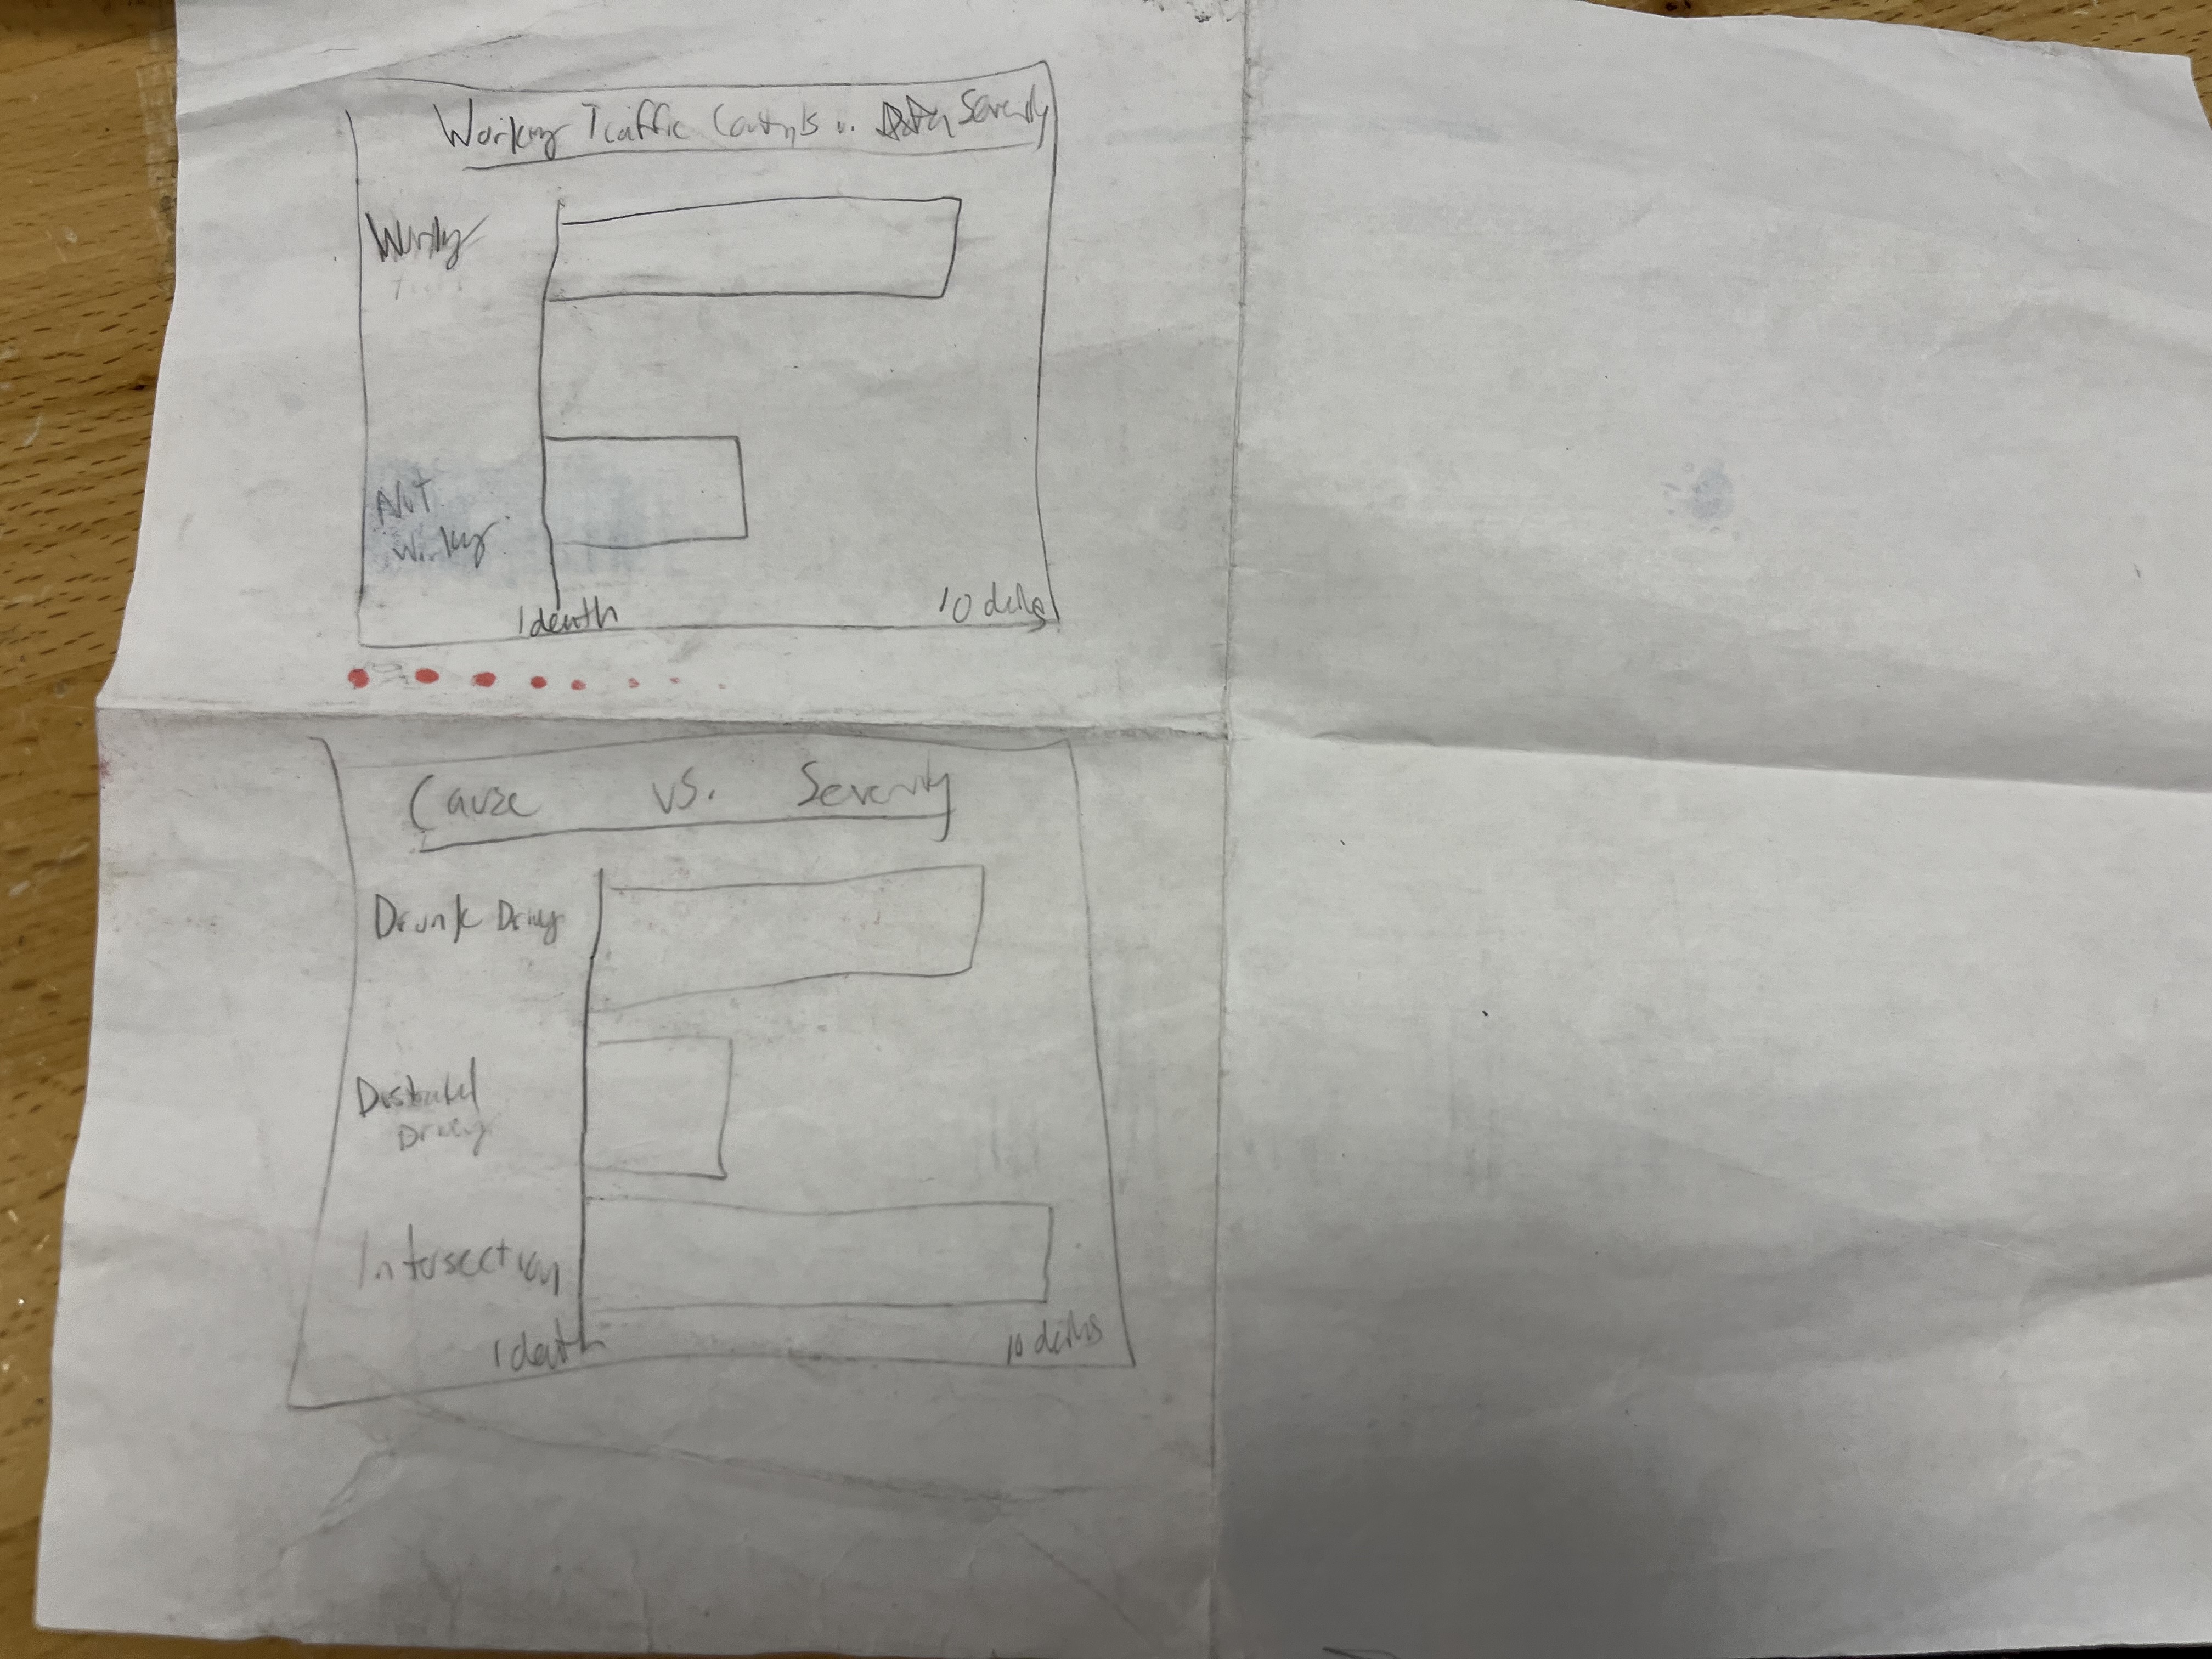 Working Traffic Controls v. Severity
Working
Not
Working
1 death
10 deaths
Cause vs. Severity
Drunk Driving
Distracted
Driving
Intersection
1 death
10 deaths